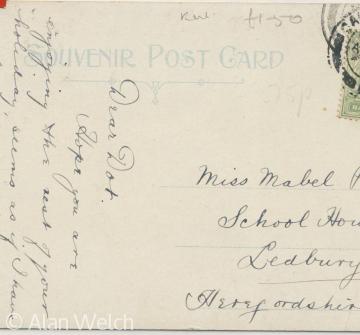 £1.50
SOUVENIR POST CARD
75p
Dear Dot.
Hope you are
enjoying the rest of your
holiday, seems as if I have
Miss Mabel
School Hou
Ledbury
Herefordshire
© Alan Welch